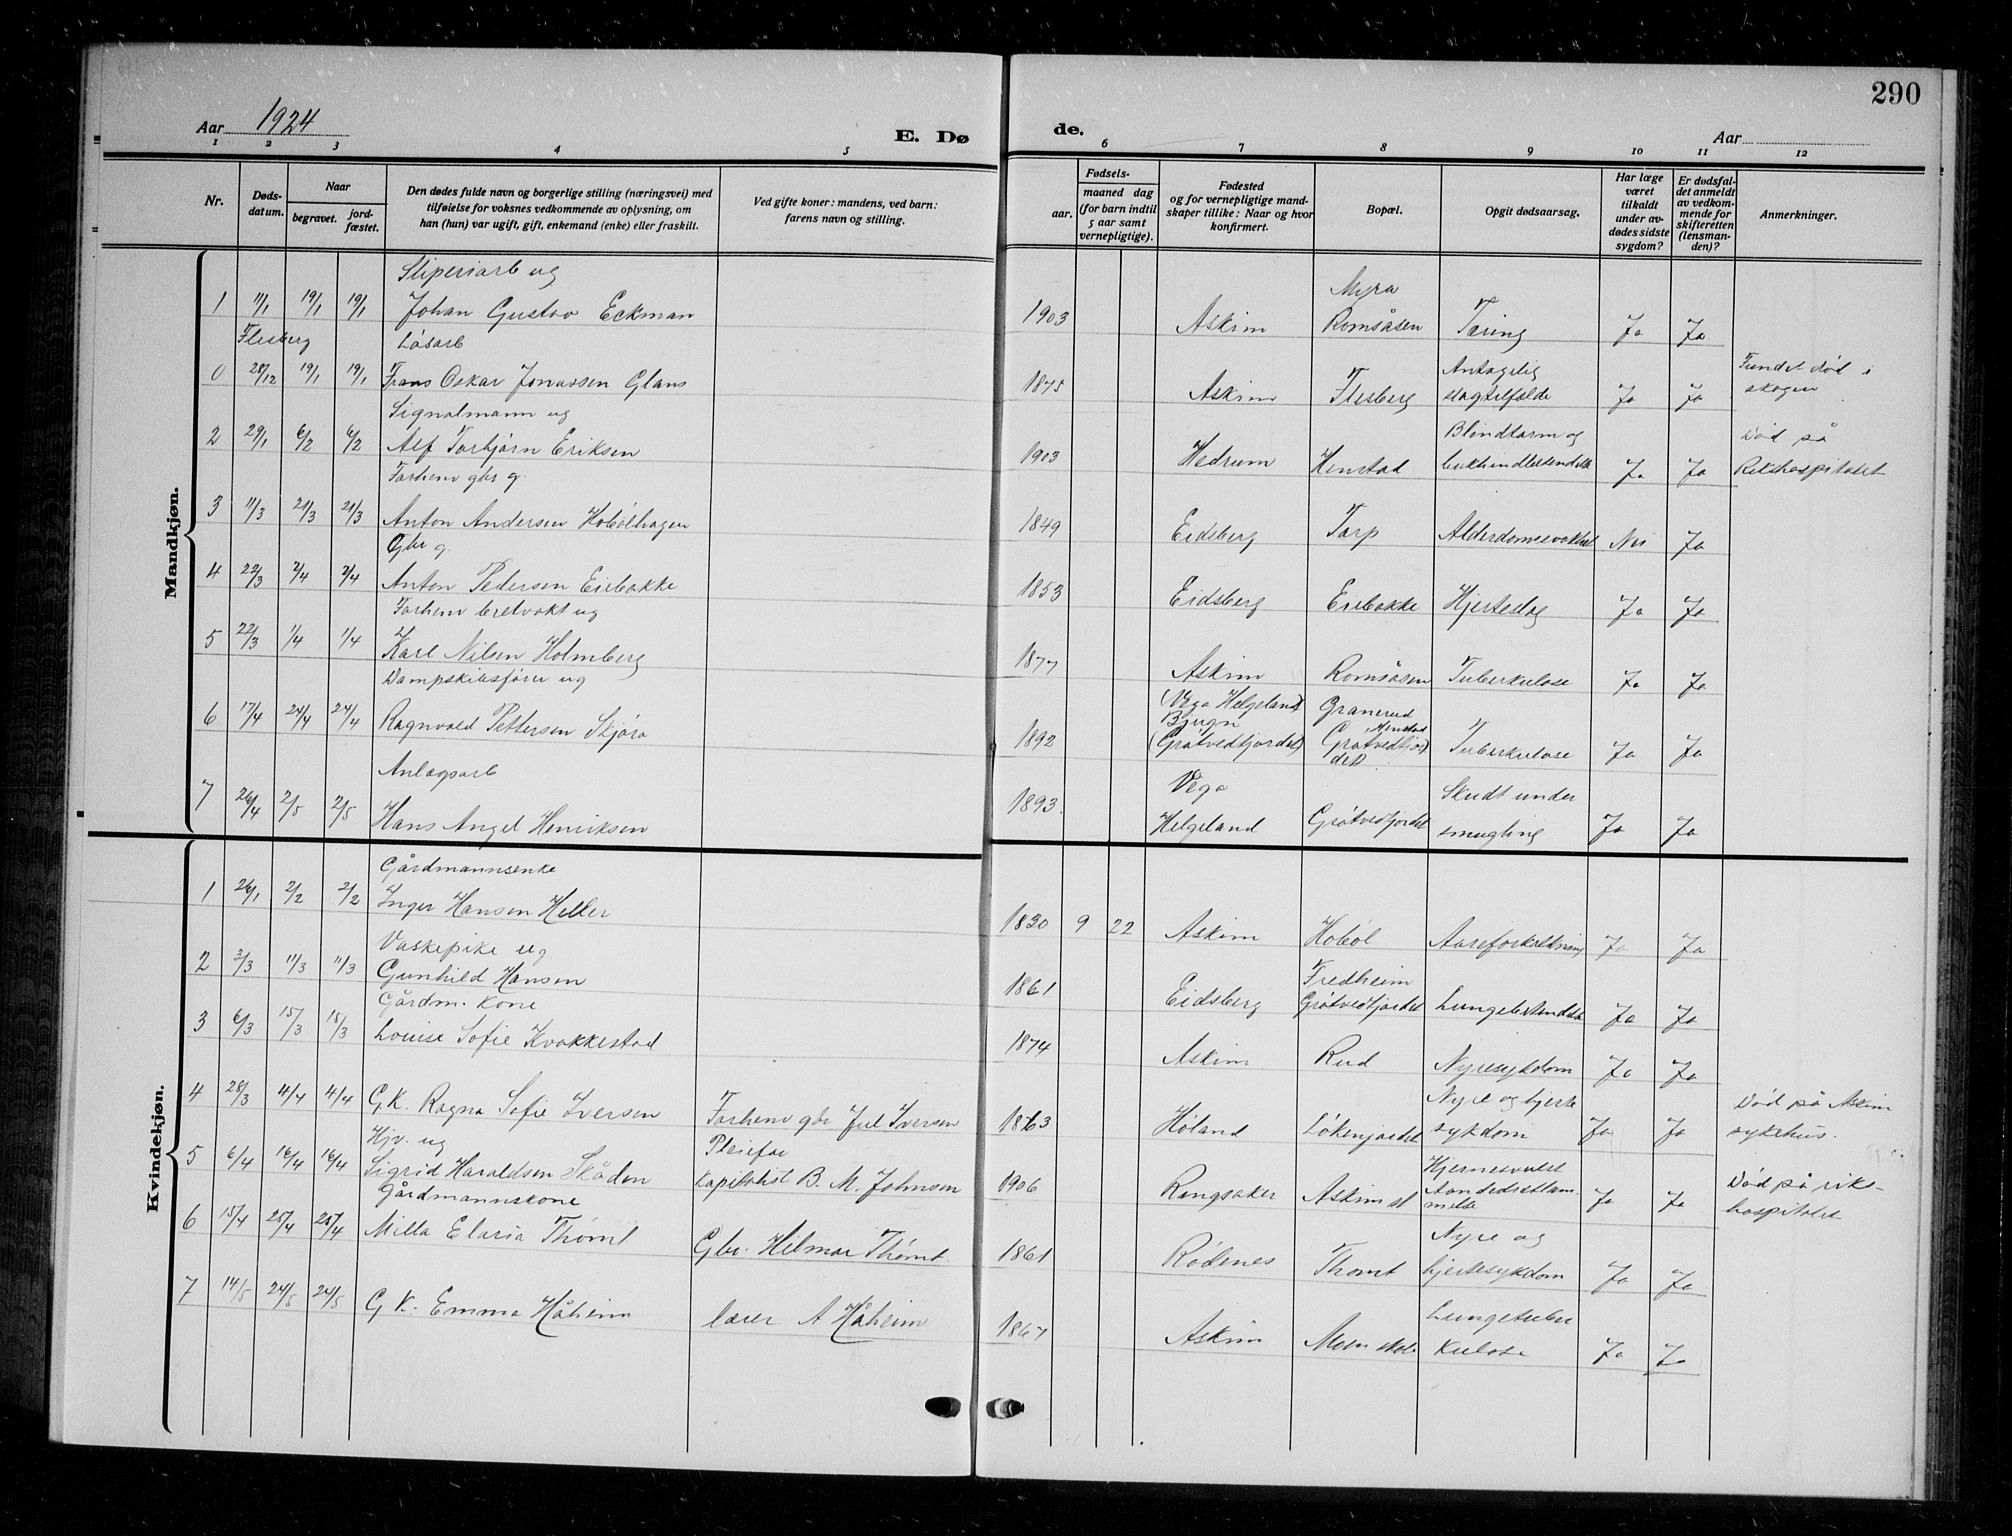 290
Aar 1924
E. Dø
de.
Aar
1 2 3 4 5 6 7 8 9 10 11 12
Nr.
Døds-
datum.
Naar
begravet.
jord-
fæstet.
Den dødes fulde navn og borgerlige stilling (næringsvei) med
tilføielse for voksnes vedkommende av oplysning, om
han (hun) var ugift, gift, enkemand (enke) eller fraskilt.
Ved gifte koner: mandens, ved barn:
farens navn og stilling.
Fødsels-
aar.
maaned dag
(for barn indtil
5 aar samt
vernepligtige).
Fødested
og for vernepligtige mand-
skaper tillike: Naar og hvor
konfirmert.
Bopæl.
Opgit dødsaarsag.
Har læge
været
tilkaldt
under av-
dødes sidste
sygdom?
Er dødsfal-
det anmeldt
av vedkom-
mende for
skifteretten
(lensman-
den)?
Anmerkninger.
Mandkjøn.
Sliperiarb ug Myra
1 11/1 19/1 19/1 Johan Gustav Eckman 1903 Askim Romsåsen Tæring Ja Ja
Flesberg Løsarb Antagelig Fundet død i
0 28/12 19/1 19/1 Frans Oskar Jonassen Glans 1875 Askim Flesberg slagtilfælde Ja Ja skogen
Signalmann ug Blindtarm og Død på
2 29/1 6/2 6/2 Alf Torbjørn Eriksen 1903 Hedrum Henstad bukhindbetendelse Ja Ja Rikshospitalet
Forhenv gbr g.
3 11/3 21/3 21/3 Anton Andersen Hobølhagen 1849 Eidsberg Torp Alderdomsvakhet Nei Ja
Gbr g.
4 22/3 2/4 2/4 Anton Pedersen Eiebakke 1853 Eidsberg Eiebakke Hjerteslag Ja Ja
Forhenv bretvakt ug
5 22/3 1/4 1/4 Karl Nilsen Holmberg 1877 Askim Romsåsen Tuberkulose Ja Ja
Dampskibsfører ug (Vega Helgeland) Granerud
Bjugn Henstad
6 17/4 24/4 24/4 Ragnvald Pettersen Skjøra 1892 (Grøtvedtjordet) Grøtvedtjor Tuberkulose Ja Ja
det)
Anlagsarb Vega Skudt under
7 26/4 2/5 2/5 Hans Angel Henriksen 1893 Helgeland Grøtvedtjordet smugling Ja Ja
Kvindekjøn.
Gårdmannsenke
1 26/1 2/2 2/2 Inger Hansen Heller 1830 9 22 Askim Hobøl Aareforkalkning Ja Ja
Vaskepike ug Fredheim
2 3/3 11/3 11/3 Gunhild Hansen 1861 Eidsberg Grøtvedtjordet Lungebetendelse Ja Ja
Gårdm. kone
3 6/3 15/3 15/3 Louise Sofie Kvakkestad 1874 Askim Rud Nyresykdom Ja Ja
Nyre og hjerte Død på Askim
4 28/3 4/4 4/4 G.K. Ragna Sofie Iversen Forhenv gbr Jul Iversen 1863 Høland Løkenjordet sykdom Ja Ja sykehus.
Hjv. ug Pleiefar Hjernesvulst Død på riks-
5 6/4 16/4 16/4 Sigrid Haraldsen Skåden kapitalist B. M. Johnsen 1906 Ringsaker Askim st Aandedrætlam- Ja Ja hospitalet
melse
Gårdmannskone Nyre og
6 15/4 25/4 25/4 Milla Elaria Thømt Gbr. Hilmar Thømt. 1861 Rødenes Thømt hjertesykdom Ja Ja
Lungetuber
7 14/5 24/5 24/5 G K. Emma Håheim lærer A Håheim 1867 Askim skole kulose Ja Ja